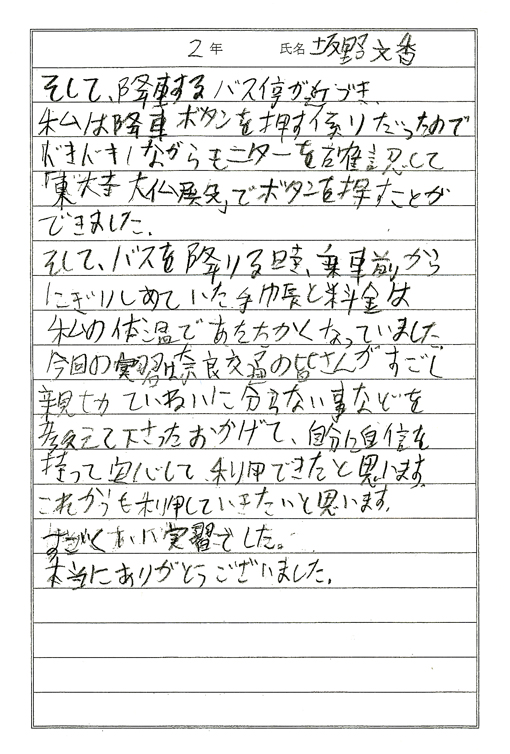 2年 氏名 坂野文香
そして、降車するバス停が近づき、
私は降車ボタンを押す係りだったので
どきどきしながらモニターを確認して
「東大寺大仏殿先」でボタンを押すことが
できました。
そして、バスを降りる時、乗車前から
にぎりしめていた手帳と料金は
私の体温であたたかくなっていました
今回の実習は奈良交通の皆さんがすごし
親切かていねいに分らない事などを
教えて下さったおかげで、自分に自信を
持って安心して利用できたと思います。
これからも利用していきたいと思います。
すごくいい実習でした。
本当にありがとうございました。